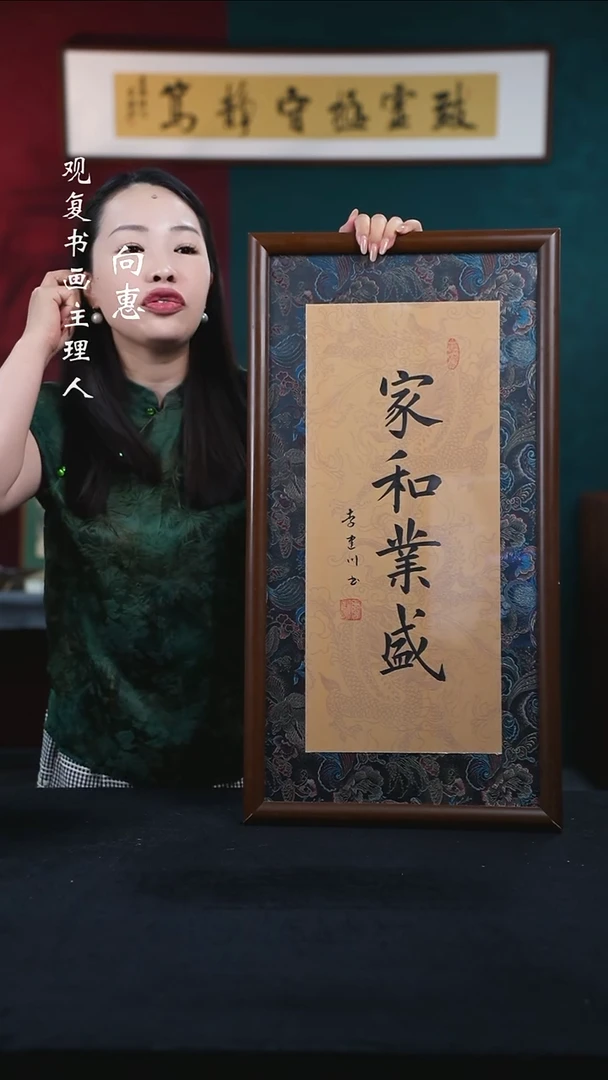 致虚極守静篤
观复书画主理人
向惠
家和業盛
李建川书